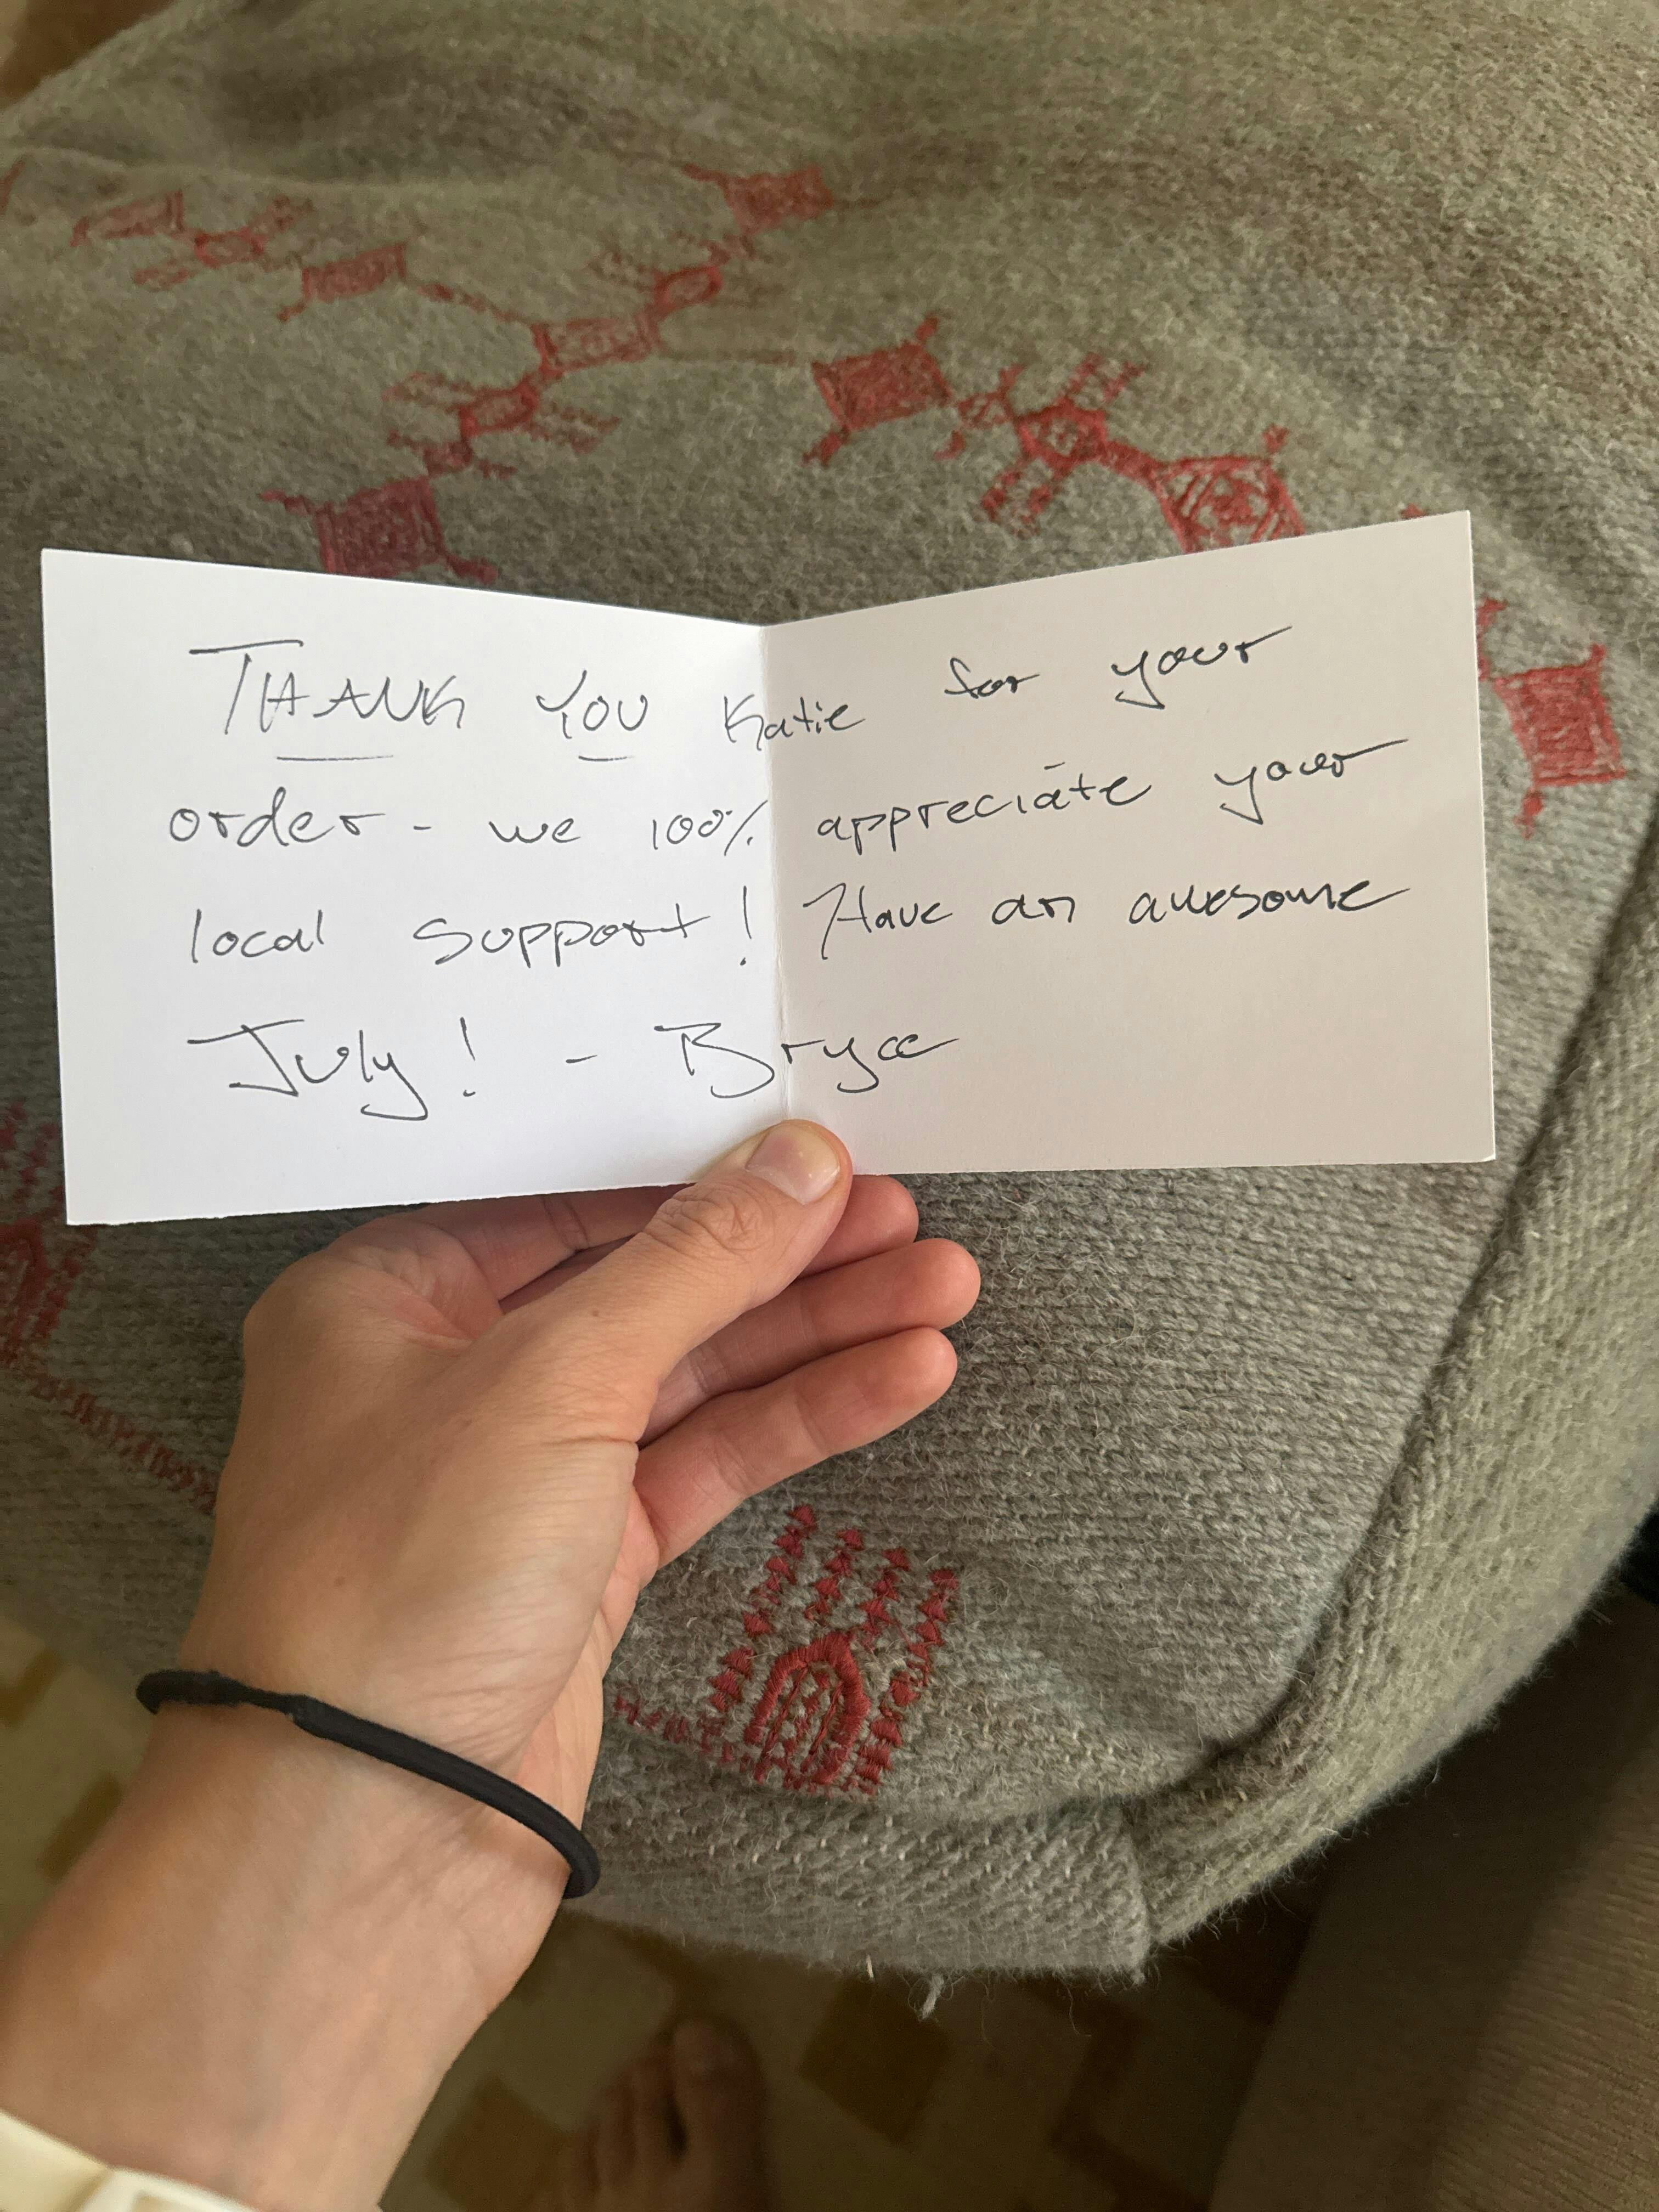 THANK YOU Katie for your
order - we 100% appreciate your
local support! Have an awesome
July! - Bryce